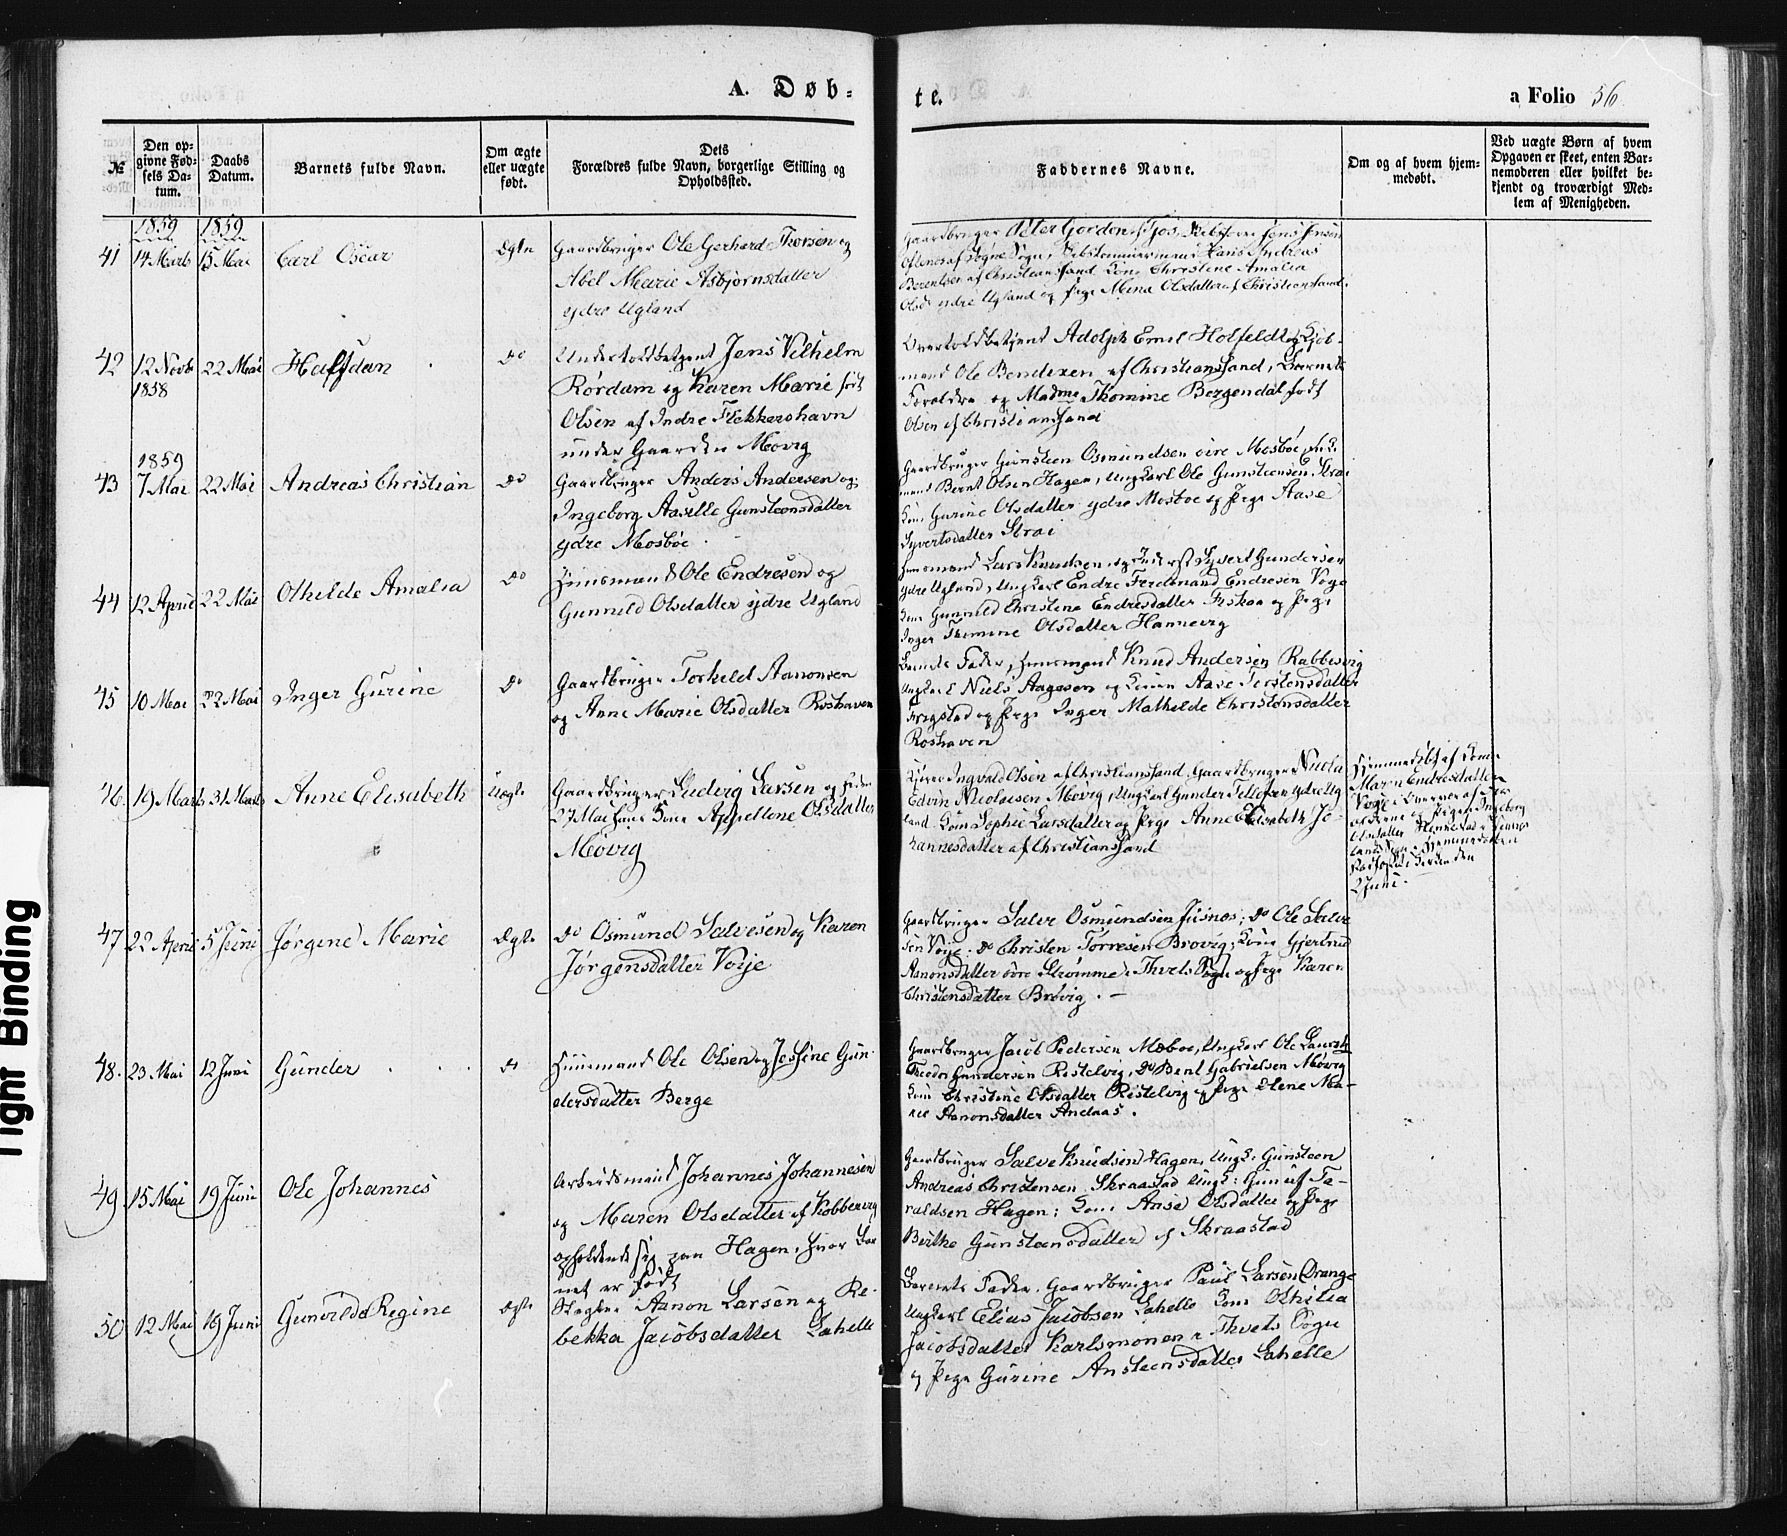 A. Døb-
te.
a Folio 56
№
Den op-
givne Fød-
sels Da-
tum.
Daabs
Datum.
Barnets fulde Navn.
Om ægte
eller uægte
født.
Dets
Forældres fulde Navn, borgerlige Stilling og
Opholdssted.
Faddernes Navne.
Om og af hvem hjem-
medøbt.
Ved uægte Børn af hvem
Opgaven er skeet, enten Bar-
nemoderen eller hvilket be-
kjendt og troværdigt Med-
lem af Menigheden.
1859 1859
41 14 Marts 15 Mai Carl Oscar Ægte Gaardbruger Ole Gerhard Thorsen og
Abel Marie Asbjørnsdatter
ydre Ugland
Gaardbruger Peter Gordon Jens Jensen
af Søgne Sogn, Hans Andreas
Berentsen af Christianssand Kone Christine Amalia
Olsd. ydre Ugland og Pige Mina Olsdatter af Christianssand.
42 12 Novbr 22 Mai Halfdan Do Undertoldbetjent Jens Vilhelm
1858
Rørdam og Karen Marie født
Olsen af Indre Flekkershavn
under Gaarden Møvig
Overtoldbetjent Adolph Emil Holfeldt, Kjøb-
mand Ole Bendixen af Christianssand, Barnets
Forældre og Madme Thomine Bergendal født
Olsen af Christianssand
1859
43 7 Mai 22 Mai Andreas Christian Do Gaardbruger Anders Andersen og
Ingeborg Aasille Gunsteensdatter
ydre Mosbøe.
Gaardbruger Gunsteen Osmundsen øvre Mosbøe,
mand Bernt Olsen Hagen, Ungkarl Ole Gunsteensen Strai
Kone Gurine Olsdatter ydre Mosbøe og Pige Aase
Syvertsdatter Strai
44 12 April 22 Mai Othilde Amalia Do Huusmand Ole Endresen og
Gunnild Olsdatter ydre Ugland
Huusmand Lars Knudsen, og Inderst Syvert Gundersen
ydre Ugland, Ungkarl Endre Ferdinand Endresen Voge
Kone Gunnild Christine Endresdatter Fiskaa og Pige
Inger Thomine Olsdatter Hannevig
45 10 Mai 22 Mai Inger Gurine Do Gaardbruger Torkild Aanonsen
og Anne Marie Olsdatter Roshaven
Barnets Fader, Huusmand Knud Andersen Rabbesvig
Ungkarl Niels Aagesen og Konen Aase Terstensdatter
Frigstad og Pige Inger Mathilde Christensdatter
Roshaven
46. 19 Marts 31 Marts Anne Elisabeth Uægte Gaardbruger Ludvig Larsen og
27 Mai Kone Appellone Olsdatter
Møvig
Ingvald Olsen af Christianssand, Gaardbruger Nicolai
Edvin Nicolaisen Møvig, Ungkarl Gunder Tellefsen ydre Ug-
land. Kone Sophie Larsdatter og Pige Anne Elisabeth Jo-
hannesdatter af Christianssand
Hjemmedøbt af Kone
Maren Endresdatter
Voge
Pigen Ingeborg
Olsdatter
Sogn. Hjemmedaaben
den
2 Juni.
47 22 April 5 Juni Jørgine Marie Ægte Do Osmund Salvesen og Karen
Jørgensdatter Voje
Gaardbruger Salve Osmundsen Jusnes; Do Ole Salve-
sen Voje. Do Christen Torresen Brøvig, Kone Gjertrud
Aanonsdatter øvre Strømme i Thvets Sogn og Pige Karen
Christensdatter Brøvig. —
48. 23 Mai 12 Juni Gunder Do Huusmand Ole Olsen og Josfine Gun-
dersdatter Berge
Gaardbruger Jacob Pedersen Mæbøe, Ungkarl Ole Lauritz
Theodor Gundersen Ristelvig, Do Bent Gabrielsen Møvig
Kone Christine Olsdatter Ristelvig og Pige Elene Ma-
rie Aanonsdatter Andaas.
49 15 Mai 19 Juni Ole Johannes Arbeidsmand Johannes Johannesen
og Maren Olsdatter af Kobbervig
opholdende sig paa Hagen, hvor Bar-
net er født
Gaardbruger Salve Knudsen Hagen, Ungk: Gunsteen
Andreas Christensen Skraastad Ungk: Gunuf Ta-
raldsen Hagen; Kone Anne Olsdatter og Pige
Birthe Gunsteensdatter af Skraastad
50 12 Mai 19 Juni Gunvilda Regine Ægte Aanon Larsen og Re-
bekka Jacobsdatter Lahelle
Barnets Fader, Gaardbruger Paul Larsen Drange
Ungkarl Elias Jacobsen Lahelle Kone Othilia
Jacobsdatter Karlsmonen i Thvets Sogn
og Pige Gurine Ansteensdatter Lahelle
Tight Binding